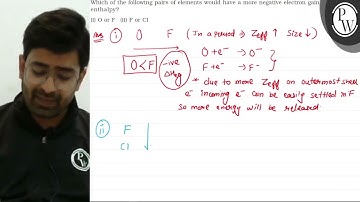 Which of the following pairs of elements would have a more negative electron gain
enthalpy?
(i) O or F (ii) F or Cl
Ans (i) O F (In a period → Zeff ↑ Size ↓)
O < F -ive Δ Heg
O + e⁻ → O⁻
F + e⁻ → F⁻
* due to more Zeff on outermost shell
e⁻ incoming e⁻ can be easily settled in F
so more energy will be released
(ii) F
Cl
PW